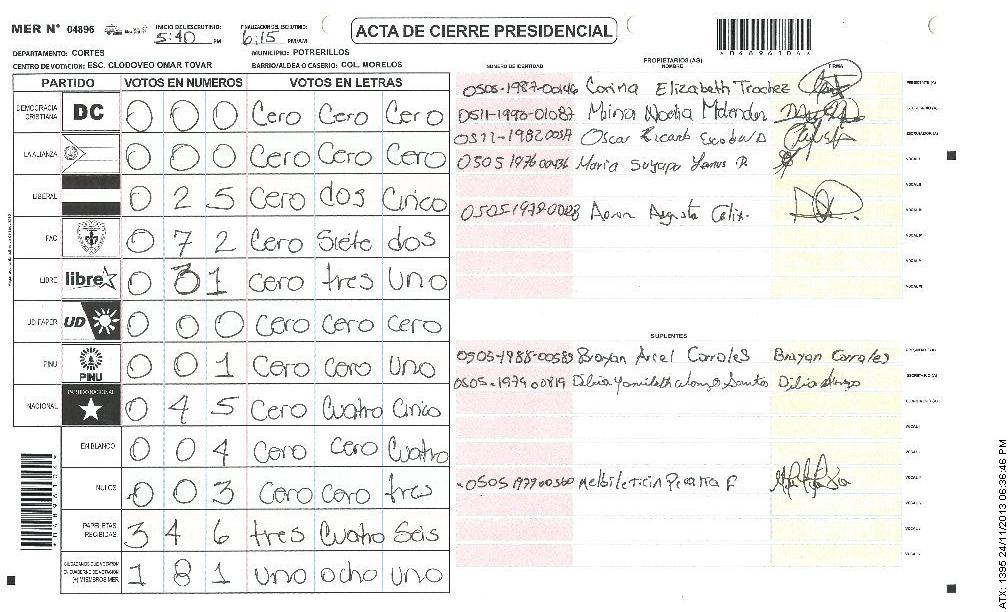 MER Nº 04896 INICIO DEL ESCRUTINIO: 5:40 PM FINALIZACION DEL ESCRUTINIO: 6:15 PM/AM
ACTA DE CIERRE PRESIDENCIAL
DEPARTAMENTO: CORTES MUNICIPIO: POTRERILLOS
CENTRO DE VOTACION: ESC. CLODOVEO OMAR TOVAR BARRIO/ALDEA O CASERIO: COL. MORELOS
PARTIDO VOTOS EN NUMEROS VOTOS EN LETRAS
DEMOCRACIA CRISTIANA DC 0 0 0 Cero Cero Cero
LA ALIANZA 0 0 0 Cero Cero Cero
LIBERAL 0 2 5 Cero dos Cinco
PAC 0 7 2 Cero Siete dos
LIBRE libre 0 3 1 Cero tres uno
UD-FAPER UD 0 0 0 Cero Cero Cero
PINU PINU 0 0 1 Cero Cero uno
NACIONAL PARTIDO NACIONAL 0 4 5 Cero Cuatro Cinco
EN BLANCO 0 0 4 Cero Cero Cuatro
NULOS 0 0 3 Cero Cero tres
PAPELETAS RECIBIDAS 3 4 6 tres Cuatro Seis
CIUDADANOS QUE VOTARON EN CUADERNO DE VOTACION (+) MIEMBROS MER 1 8 1 uno ocho uno
PROPIETARIOS (AS)
NUMERO DE IDENTIDAD NOMBRE FIRMA
0505-1987-00146 Corina Elizabeth Trochez PRESIDENTE (A)
0511-1990-01087 SECRETARIO (A)
Oscar Ricardo ESCRUTADOR (A)
Maria Suyapa VOCAL I
VOCAL II
Augusto VOCAL III
VOCAL IV
VOCAL V
VOCAL VI
SUPLENTES
0505-1988-00589 Brayan Ariel Corrales Brayan Corrales PRESIDENTE (A)
0505-1979-00819 Dilia Yamileth Alonzo Santos Dilia Alonzo SECRETARIO (A)
ESCRUTADOR (A)
VOCAL I
ATX: 1395 24/11/2013 06:36:46 PM